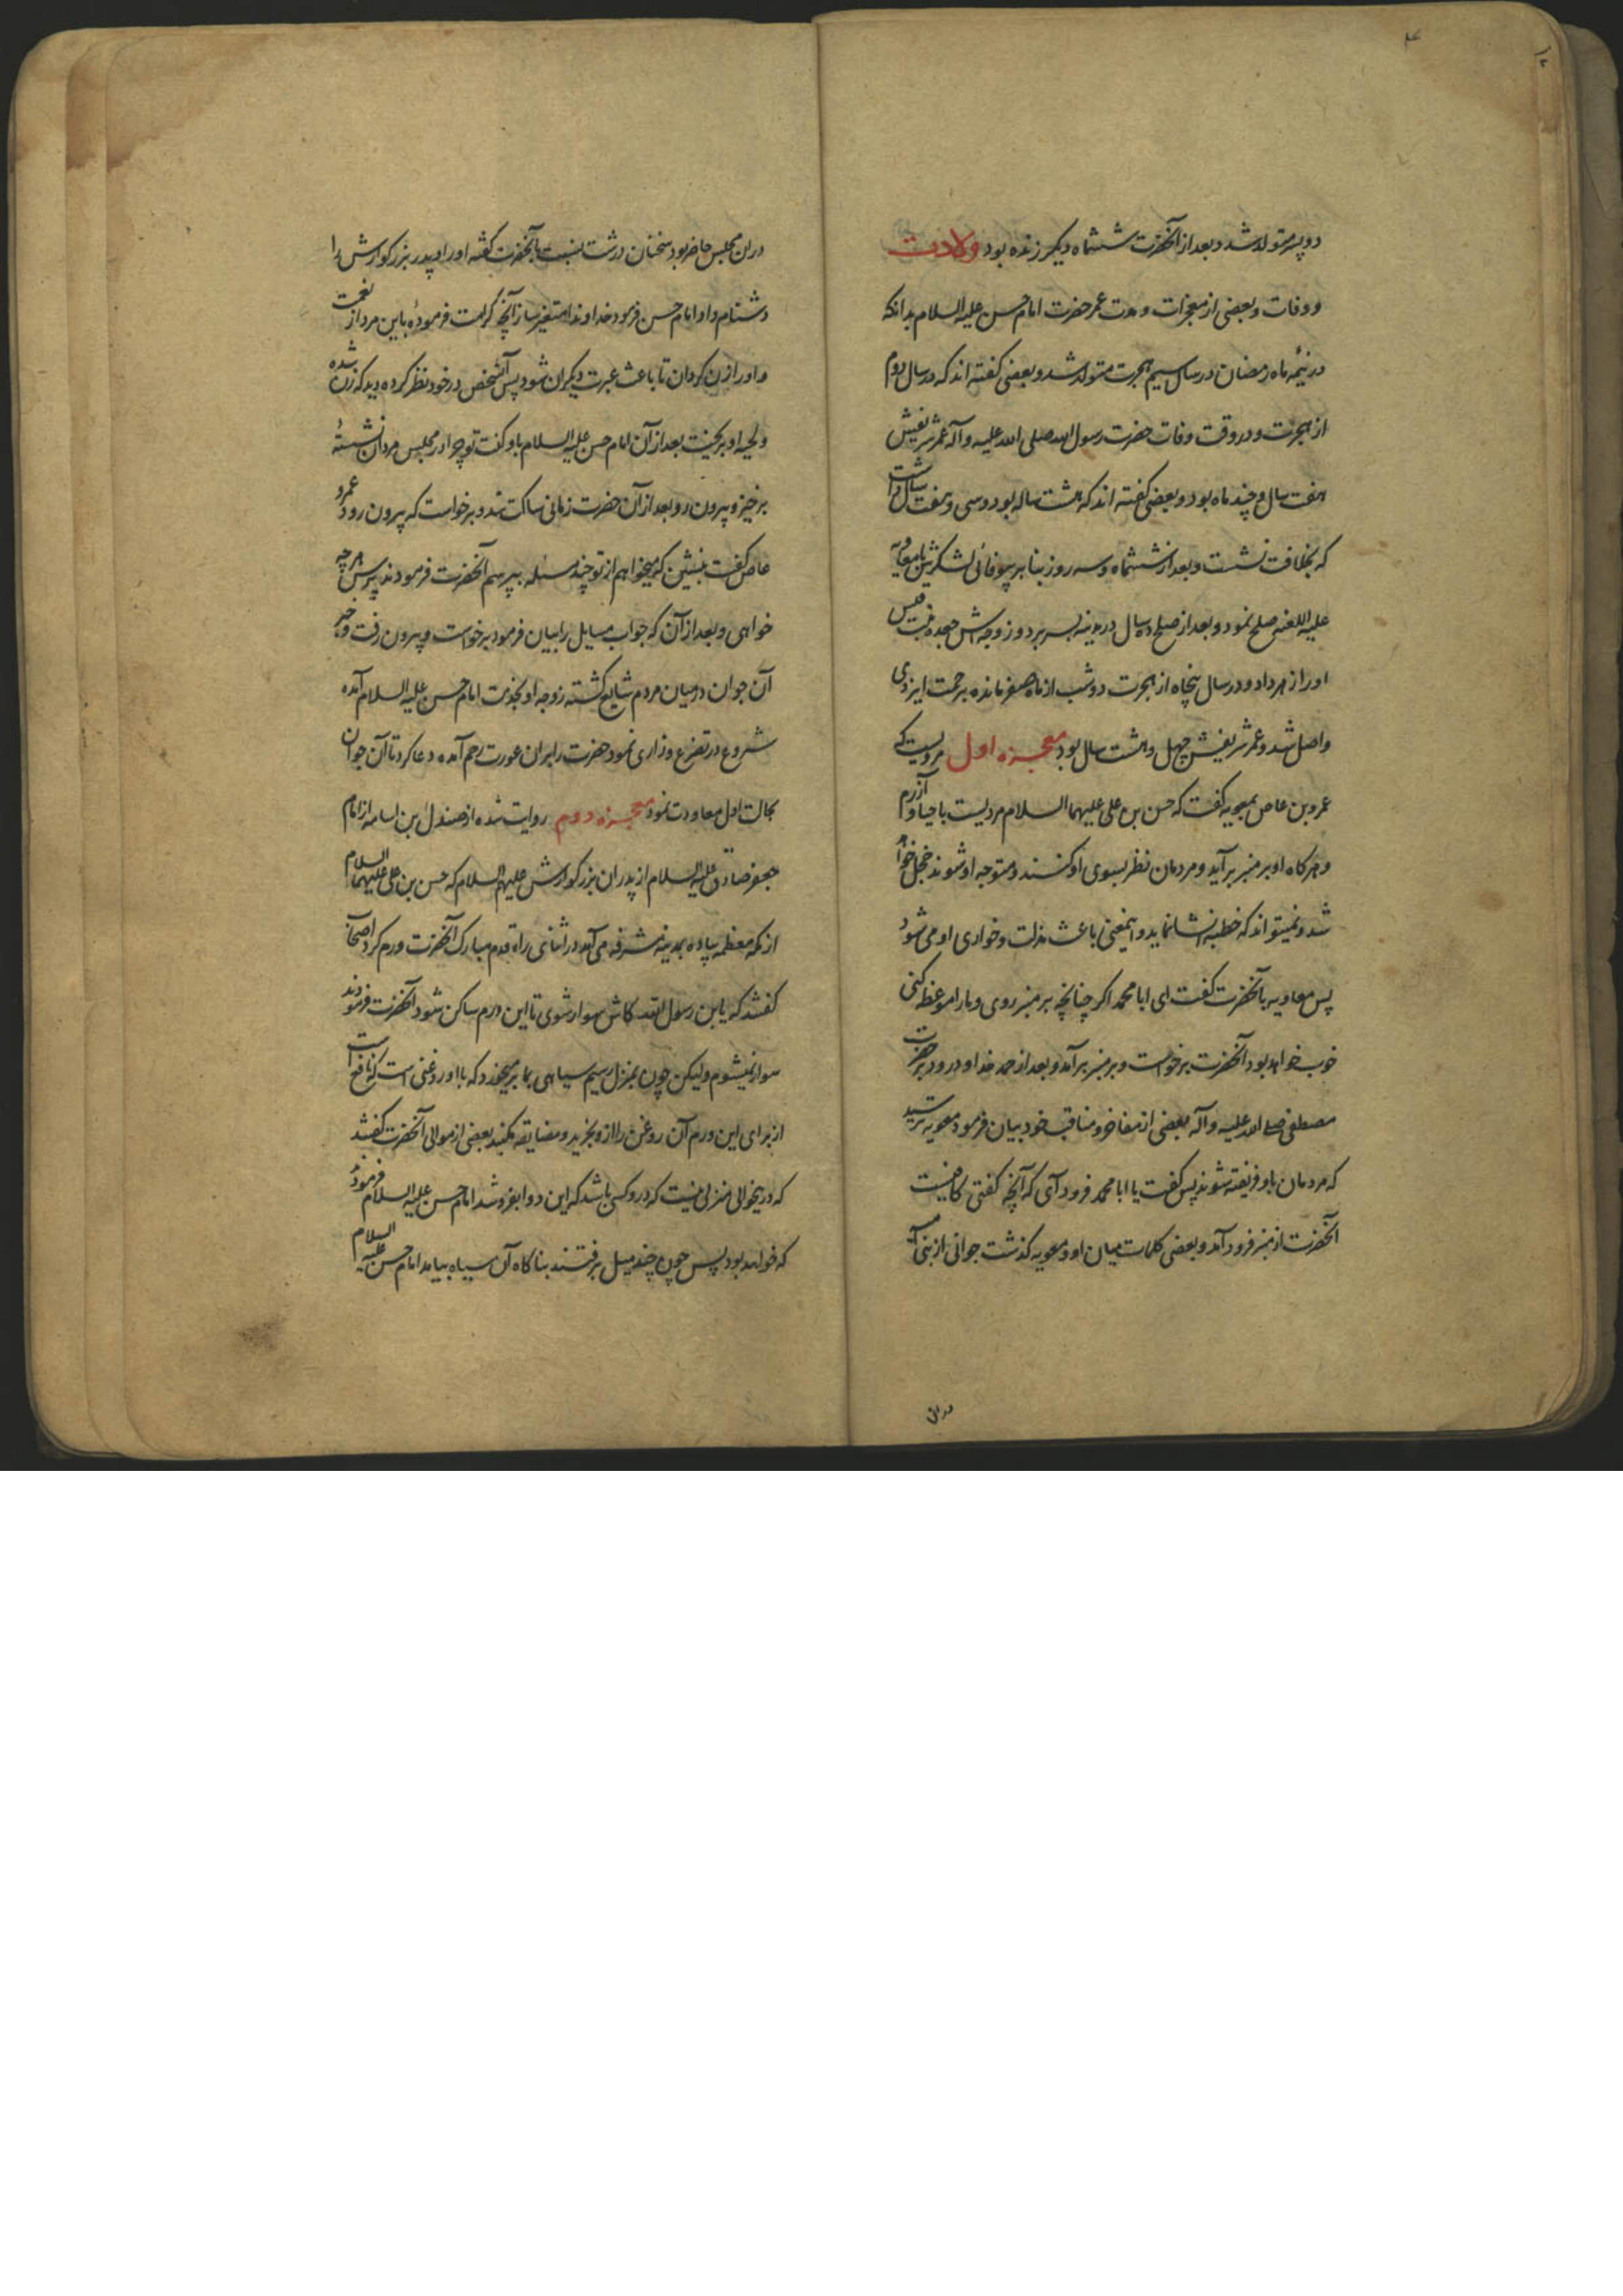 دو پسر متولد شد و بعد از آنحضرت ششماه دیگر زنده بود ولادت
و وفات و بعضی از معجزات و مدت عمر حضرت امام حسن علیه السلام بدانکه
در نیمهٔ ماه رمضان در سال سیم هجرت متولد شد و بعضی گفته اند که در سال دوم
از هجرت و در وقت وفات حضرت رسول الله صلی الله علیه وآله عمر شریفش
هفت سال و چند ماه بود و بعضی گفته اند که هشت ساله بود و سی و هفت سال داشت
که بخلافت نشست و بعد از ششماه و سه روز بنا بر بیوفائی لشکرش با معاویه
علیه اللعنه صلح نمود و بعد از صلح ده سال در مدینه بسر برد و زوجه اش جعده بنت قیس
او را زهر داد و در سال پنجاه از هجرت دو شب از ماه صفر مانده برحمت ایزدی
واصل شد و عمر شریفش چهل و هشت سال بود معجزه اول مرویست که
عمرو بن عاص بمعویه گفت که حسن بن علی علیهما السلام مردیست با حیا و آزرم
و هر گاه او بر منبر برآید و مردمان نظر بسوی او کنند و متوجه او شوند خجل خواهد
شد و نمیتواند که خطبه انشا نماید و اینمعنی باعث مذلت و خواری او می شود
پس معاویه بآنحضرت گفت ای ابا محمد اگر چنانچه بر منبر روی و ما را موعظه کنی
خوب خواهد بود آنحضرت برخواست و بر منبر برآمد و بعد از حمد خدا و درود بر حضرت
مصطفی صلی الله علیه وآله بعضی از مفاخر و مناقب خود بیان فرمود معویه ترسید
که مردمان باو فریفته شوند پس گفت یا ابا محمد فرود آی که آنچه گفتی کافیست
آنحضرت از منبر فرود آمد و بعضی کلمات میان او و معویه گذشت جوانی از بنی امیه
دران
دران مجلس حاضر بود سخنان درشت نسبت بآنحضرت گفته او را و پدر بزرگوارش را
دشنام داد امام حسن فرمود خداوندا متغیر ساز آنچه کرامت فرمودهٔ باین مرد از نعمت
و او را زن گردان تا باعث عبرت دیگران شود پس آنشخص در خود نظر کرده دید که زن شده
و لحیه او بریخت بعد از آن امام حسن علیه السلام باو گفت تو چرا در مجلس مردان نشستهٔ
برخیز و بیرون رو بعد از آن حضرت زمانی ساکت شد و برخواست که بیرون رود عمرو
عاص گفت بنشین که میخواهم از تو چند مسئله بپرسم آنحضرت فرمودند بپرس هر چه
خواهی و بعد از آن که جواب مسایل را بیان فرمود برخواست و بیرون رفت و خبر
آن جوان در میان مردم شایع گشته زوجه او بخدمت امام حسن علیه السلام آمده
شروع در تضرع و زاری نمود حضرت را بر آن عورت رحم آمده دعا کرد تا آن جوان
بحالت اول معاودت نمود معجزه دوم روایت شده از صندل بن اسامه از امام
جعفر صادق علیه السلام از پدران بزرگوارش علیهم السلام که حسن بن علی علیهما السلام
از مکه معظمه پیاده بمدینه مشرفه می آمد در اثنای راه قدم مبارک آنحضرت ورم کرد اصحاب
گفتند که یابن رسول الله کاش سوار شوی تا این ورم ساکن شود آنحضرت فرمودند
سوار نمیشوم ولیکن چون بمنزل رسیم سیاهی بما برمیخورد که با او روغنی است که نافع است
از برای این ورم آن روغن را از و بخرید و مضایقه مکنید بعضی از موالی آنحضرت گفتند
که در ینحوالی منزلی نیست که در و کسی باشد که این دوا بفروشد امام حسن علیه السلام فرمود
که خواهد بود پس چون چند میل برفتند بناگاه آن سیاه بیامد امام حسن علیه السلام